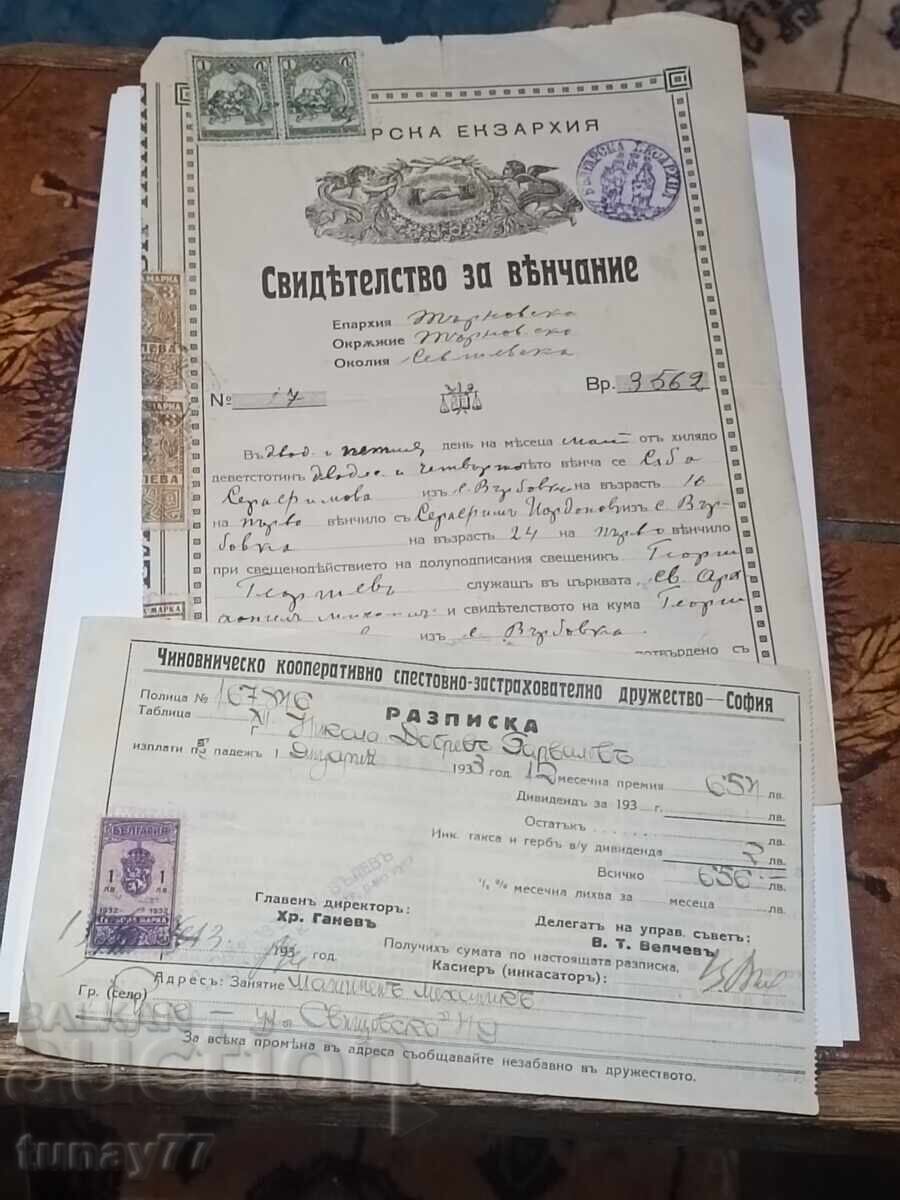 РСКА ЕКЗАРХИЯ
БЪЛГАРСКА ЕКЗАРХИЯ
Свидѣтелство за вѣнчание
Епархия Търновска
Окрѫжие Търновско
Околия Севлиевска
№ 17 Вр. 3562
Въ двад. и петия день на мѣсеца май отъ хилядо
деветстотинъ двадес. и четвърто лѣто вѣнча се
Серафимова изъ с. Върбовка на възрасть 16
на първо вѣнчило съ Серафимъ Йордановъ изъ с. Вър-
бовка на възрасть 24 на първо вѣнчило
при священодействието на долуподписания свещеникъ Георги
Георгиевъ служащъ въ църквата св. Арх
и свидетелството на кума Георги
изъ с. Върбовка
потвърдено съ
МАРКА
3
ЛЕВА
МАРКА
3
ЛЕВА
МАРКА
Чиновническо кооперативно спестовно-застрахователно дружество — София
Полица № 167846
РАЗПИСКА
Таблица XI Никола Добревъ
изплати по падежъ 1 Януарий 1933 год. 12 месечна премия 654 лв.
Дивидендъ за 193 г. лв.
Остатъкъ лв.
Инк. такса и гербъ в/у дивидента 2 лв.
Всичко 656.— лв.
% месечна лихва за месеца лв.
БЪЛГАРИЯ
1 ЛВ. 1 ЛВ.
1932 1932
ГЕРБОВА МАРКА
Главенъ директоръ:
Хр. Ганевъ
Делегатъ на управ. съветъ:
В. Т. Велчевъ
193 год. Получихъ сумата по настоящата разписка,
Касиеръ (инкасаторъ):
Адресъ: Занятие Машиненъ механикъ
Гр. (село) Русе — ул. Свищовска
За всѣка промѣна въ адреса съобщавайте незабавно въ дружеството.
BALKAN
auction
tunay77